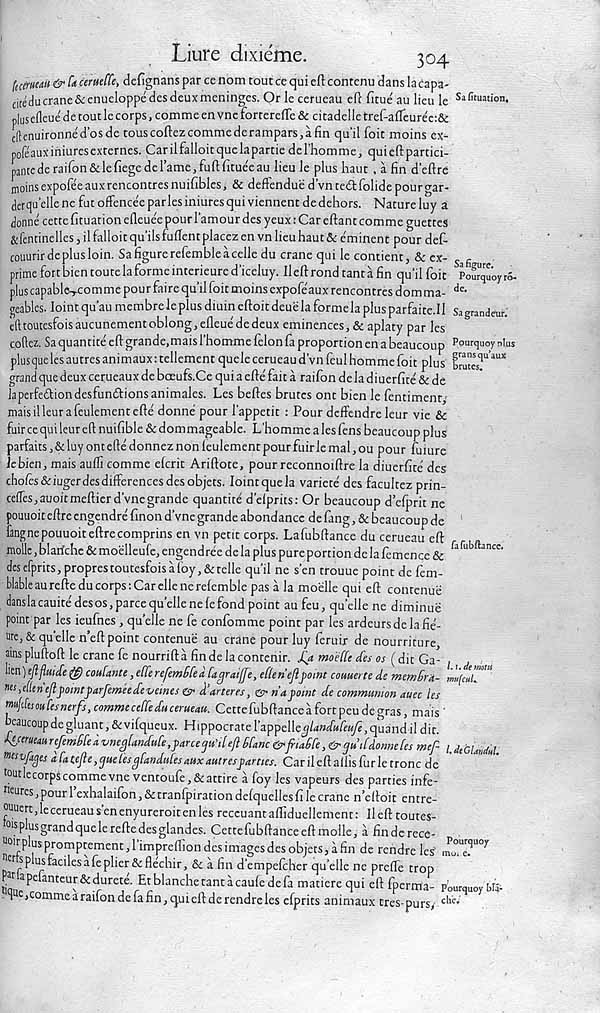 Liure dixiéme. 304
le cerueau & la ceruelle, deſignans par ce nom tout ce qui eſt contenu dans la capa-
cité du crane & enueloppé des deux meninges. Or le cerueau eſt ſitué au lieu le
Sa ſituation.
plus eſleué de tout le corps, comme en vne fortereſſe & citadelle treſ-aſſeurée: &
eſt enuironné d'os de tous coſtez comme de rampars, à fin qu'il ſoit moins ex-
poſé aux iniures externes. Car il falloit que la partie de l'homme, qui eſt partici-
pante de raiſon & le ſiege de l'ame, fuſt ſituée au lieu le plus haut, à fin d'eſtre
moins expoſée aux rencontres nuiſibles, & deffenduë d'vn tect ſolide pour gar-
der qu'elle ne fut offencée par les iniures qui viennent de dehors. Nature luy a
donné cette ſituation eſleuée pour l'amour des yeux: Car eſtant comme guettes
& ſentinelles, il falloit qu'ils fuſſent placez en vn lieu haut & éminent pour deſ-
couurir de plus loin. Sa figure reſemble à celle du crane qui le contient, & ex-
Sa figure.
prime fort bien toute la forme interieure d'iceluy. Il eſt rond tant à fin qu'il ſoit
Pourquoy rō-
plus capable, comme pour faire qu'il ſoit moins expoſé aux rencontres domma-
de.
geables. Ioint qu'au membre le plus diuin eſtoit deuë la forme la plus parfaite. Il
Sa grandeur.
eſt toutesfois aucunement oblong, eſleué de deux eminences, & aplaty par les
coſtez. Sa quantité eſt grande, mais l'homme ſelon ſa proportion en a beaucoup
Pourquoy plus
plus que les autres animaux: tellement que le cerueau d'vn ſeul homme ſoit plus
grans qu'aux
brutes.
grand que deux cerueaux de bœufs. Ce qui a eſté fait à raiſon de la diuerſité & de
la perfection des functions animales. Les beſtes brutes ont bien le ſentiment,
mais il leur a ſeulement eſté donné pour l'appetit: Pour deffendre leur vie &
fuir ce qui leur eſt nuiſible & dommageable. L'homme a les ſens beaucoup plus
parfaits, & luy ont eſté donnez non ſeulement pour fuir le mal, ou pour ſuiure
le bien, mais auſſi comme eſcrit Ariſtote, pour reconnoiſtre la diuerſité des
choſes & iuger des differences des objets. Ioint que la varieté des facultez prin-
ceſſes, auoit meſtier d'vne grande quantité d'eſprits: Or beaucoup d'eſprit ne
pouuoit eſtre engendré ſinon d'vne grande abondance de ſang, & beaucoup de
ſang ne pouuoit eſtre comprins en vn petit corps. La ſubſtance du cerueau eſt
ſa ſubſtance.
molle, blanche & moëlleuſe, engendrée de la plus pure portion de la ſemence &
des eſprits, propres toutesfois à ſoy, & telle qu'il ne s'en trouue point de ſem-
blable au reſte du corps: Car elle ne reſemble pas à la moëlle qui eſt contenuë
dans la cauité des os, parce qu'elle ne ſe fond point au feu, qu'elle ne diminuë
point par les ieuſnes, qu'elle ne ſe conſomme point par les ardeurs de la fié-
ure, & qu'elle n'eſt point contenuë au crane pour luy ſeruir de nourriture,
ains pluſtoſt le crane ſe nourriſt à fin de la contenir. La moëlle des os (dit Ga-
l. 1. de motu
lien) eſt fluide & coulante, elle reſemble à la graiſſe, elle n'eſt point couuerte de membra-
muſcul.
nes, elle n'eſt point parſemée de veines & d'arteres, & n'a point de communion auec les
muſcles ou les nerfs, comme celle du cerueau. Cette ſubſtance à fort peu de gras, mais
beaucoup de gluant, & viſqueux. Hippocrate l'appelle glanduleuſe, quand il dit.
Le cerueau reſemble à vne glandule, parce qu'il eſt blanc & friable, & qu'il donne les meſ-
l. de Glandul.
mes vſages à la teſte, que les glandules aux autres parties. Car il eſt aſſis ſur le tronc de
tout le corps comme vne ventouſe, & attire à ſoy les vapeurs des parties infe-
rieures, pour l'exhalaiſon, & tranſpiration deſquelles ſi le crane n'eſtoit entre-
ouuert, le cerueau s'en enyureroit en les receuant aſſiduellement: Il eſt toutes-
fois plus grand que le reſte des glandes. Cette ſubſtance eſt molle, à fin de rece-
uoir plus promptement, l'impreſſion des images des objets, à fin de rendre les
Pourquoy
molle.
nerfs plus faciles à ſe plier & fléchir, & à fin d'empeſcher qu'elle ne preſſe trop
par ſa peſanteur & dureté. Et blanche tant à cauſe de ſa matiere qui eſt ſperma-
Pourquoy blā-
tique, comme à raiſon de ſa fin, qui eſt de rendre les eſprits animaux tres-purs,
che.